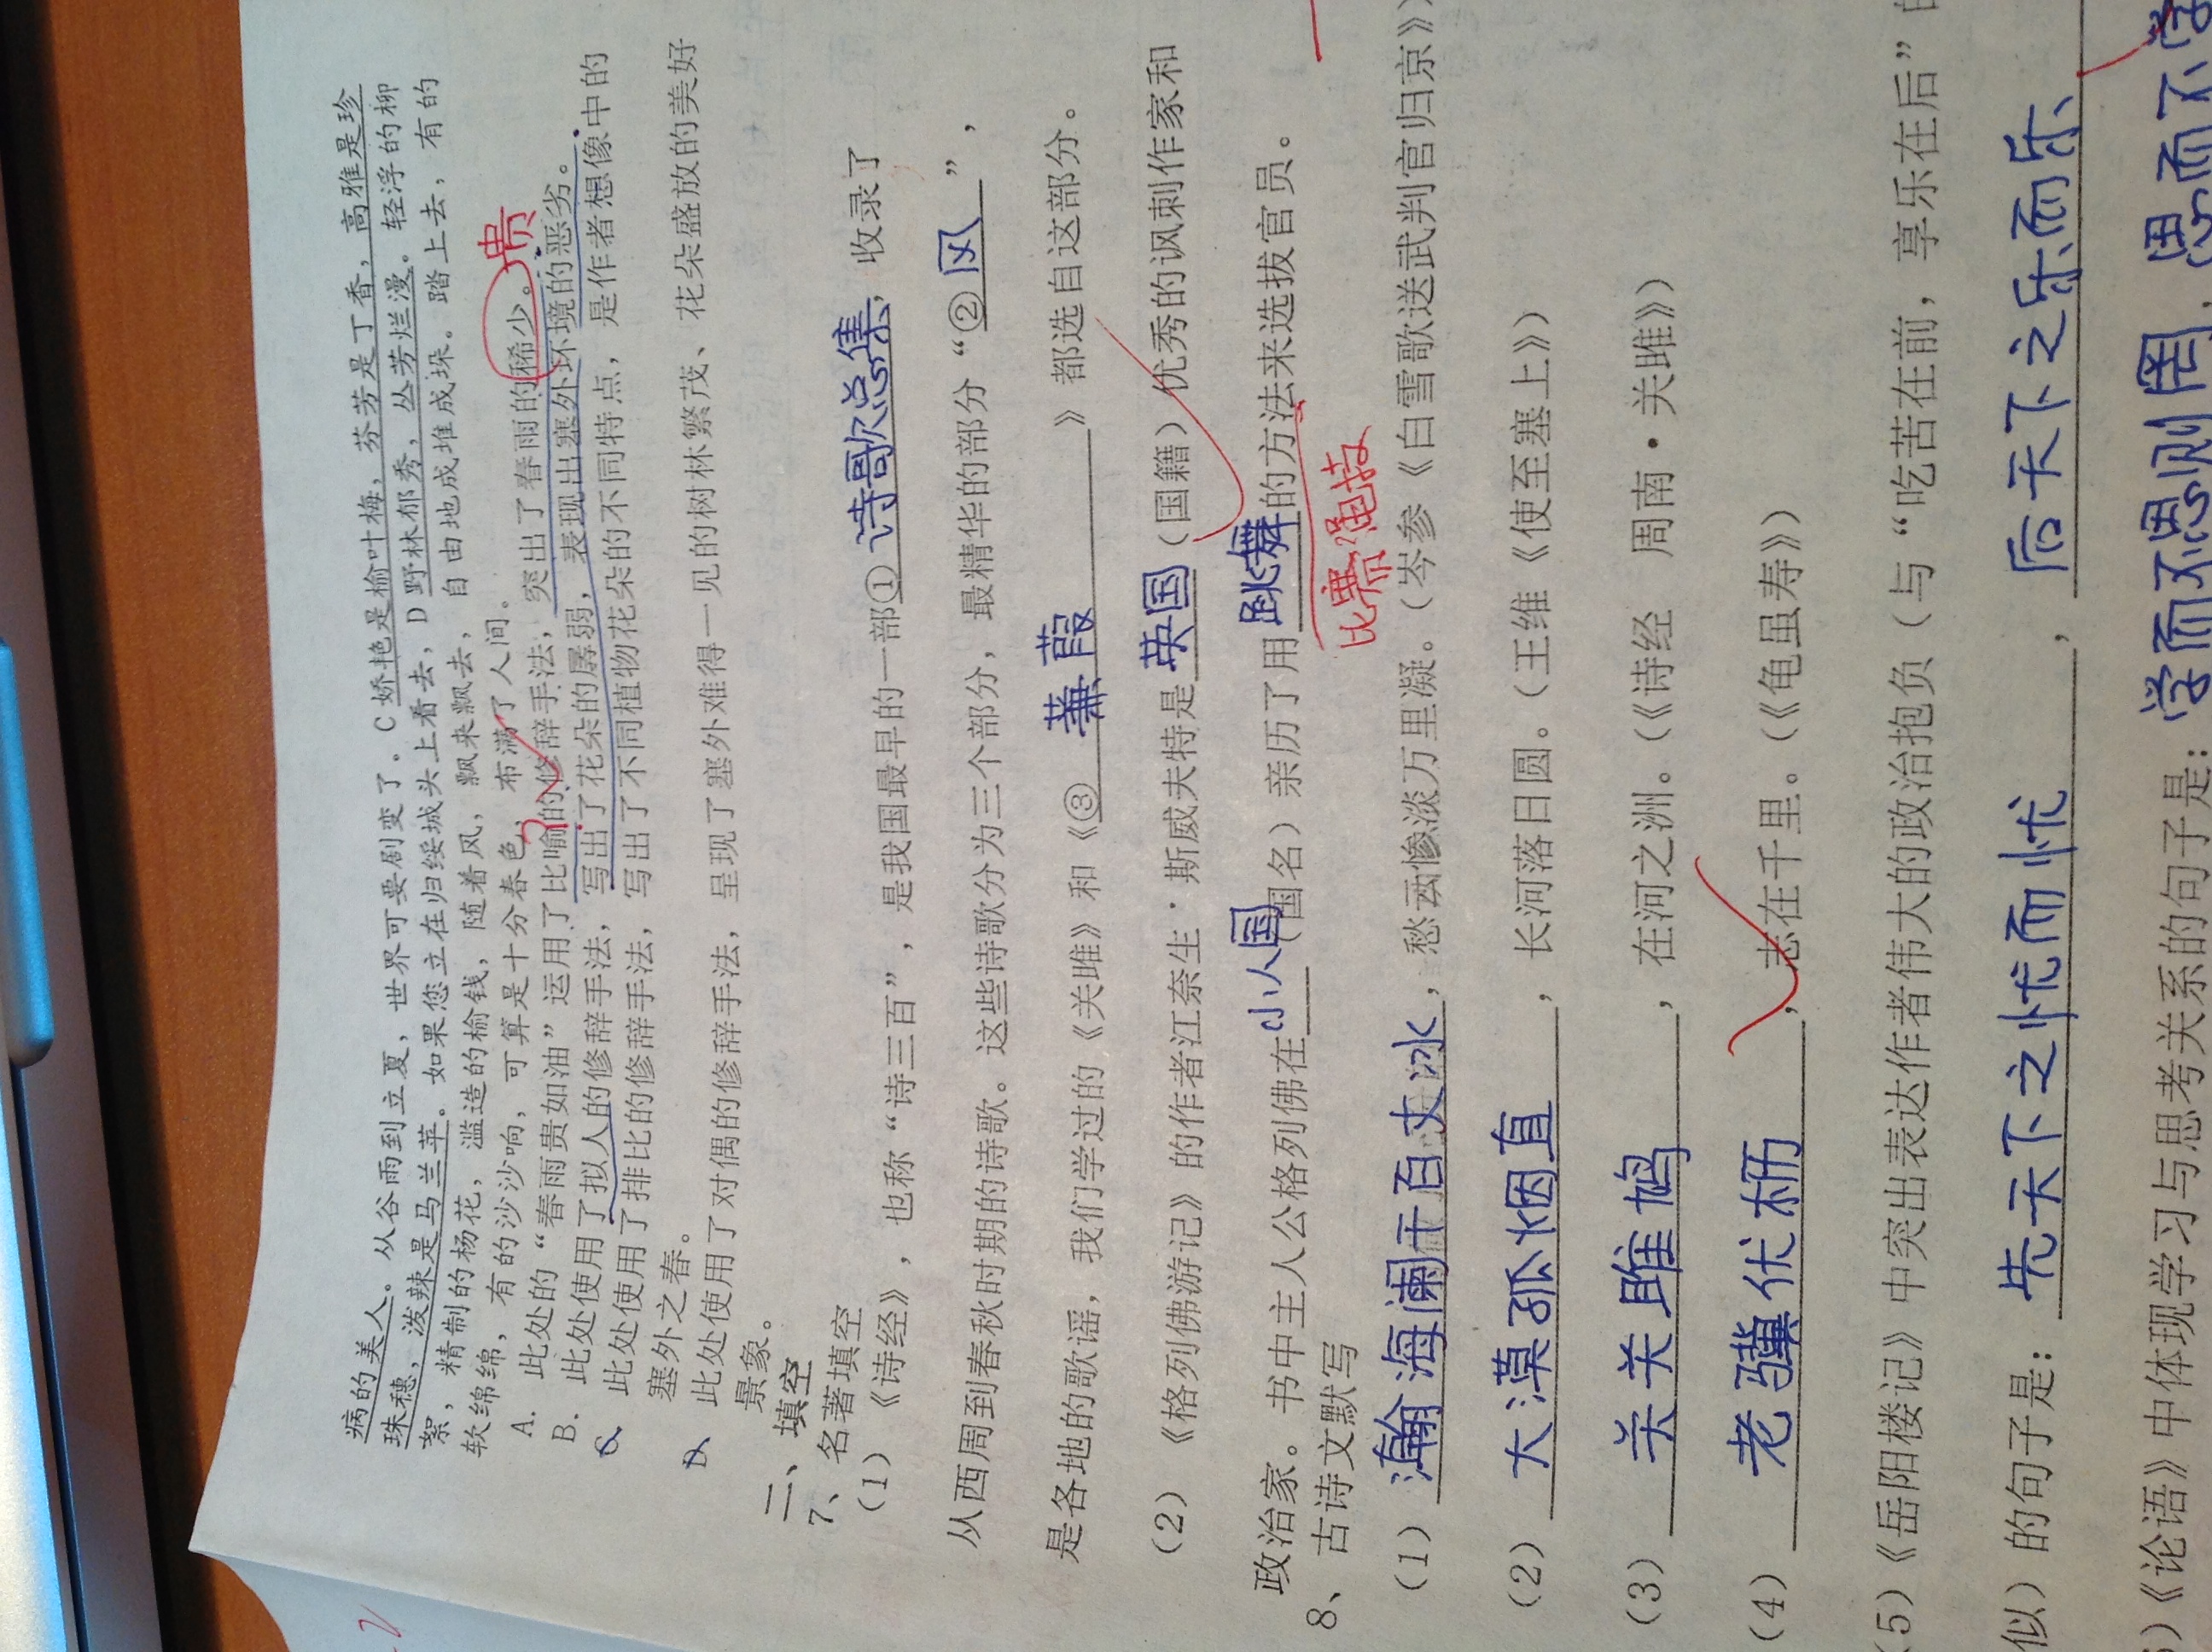 病的美人。从谷雨到立夏，世界可要剧变了。C 娇艳是榆叶梅，芬芳是丁香，高雅是珍
珠穗，泼辣是马兰苹。如果您立在归绥城头上看去，D 野林郁秀，丛芳烂漫。轻浮的柳
絮，精制的杨花，滥造的榆钱，随着风，飘来飘去，自由地成堆成垛。踏上去，有的
软绵绵，有的沙沙响，可算是十分春色，布满了人间。
A. 此处的“春雨贵如油”运用了比喻的修辞手法，突出了春雨的稀少。 贵
?
B. 此处使用了拟人的修辞手法，写出了花朵的孱弱，表现出塞外环境的恶劣。
C 此处使用了排比的修辞手法，写出了不同植物花朵的不同特点，是作者想像中的
塞外之春。
D、此处使用了对偶的修辞手法，呈现了塞外难得一见的树林繁茂、花朵盛放的美好
景象。
二、填空
7、名著填空
（1）《诗经》，也称“诗三百”，是我国最早的一部① 诗歌总集，收录了
从西周到春秋时期的诗歌。这些诗歌分为三个部分，最精华的部分“② 风 ”，
是各地的歌谣，我们学过的《关雎》和《③ 蒹葭 》都选自这部分。
（2）《格列佛游记》的作者江奈生·斯威夫特是 英国（国籍）优秀的讽刺作家和
政治家。书中主人公格列佛在 小人国（国名）亲历了用 跳舞 的方法来选拔官员。
比赛绳技
8、古诗文默写
（1）瀚海阑干百丈冰，愁云惨淡万里凝。（岑参《白雪歌送武判官归京》）
（2）大漠孤烟直，长河落日圆。（王维《使至塞上》）
（3）关关雎鸠，在河之洲。（《诗经 周南·关雎》）
（4）老骥伏枥，志在千里。（《龟虽寿》）
（5）《岳阳楼记》中突出表达作者伟大的政治抱负（与“吃苦在前，享乐在后”
似）的句子是：先天下之忧而忧，后天下之乐而乐
）《论语》中体现学习与思考关系的句子是：学而不思则罔，思而不学